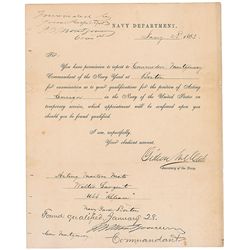 Forwarded by
NAVY DEPARTMENT,
Jany 28, 1863
Sir:
You have permission to report to Commodore Montgomery
Commandant of the Navy Yard at Boston
for examination as to your qualifications for the position of Acting
Ensign in the Navy of the United States in
temporary service, which appointment will be confirmed upon you
should you be found qualified.
I am, respectfully,
Your obedient servant,
Gideon Welles
Secretary of the Navy.
Acting Masters Mate
Walter Sargent
USS
Navy Yard Boston
Found qualified January 28.
Commandant